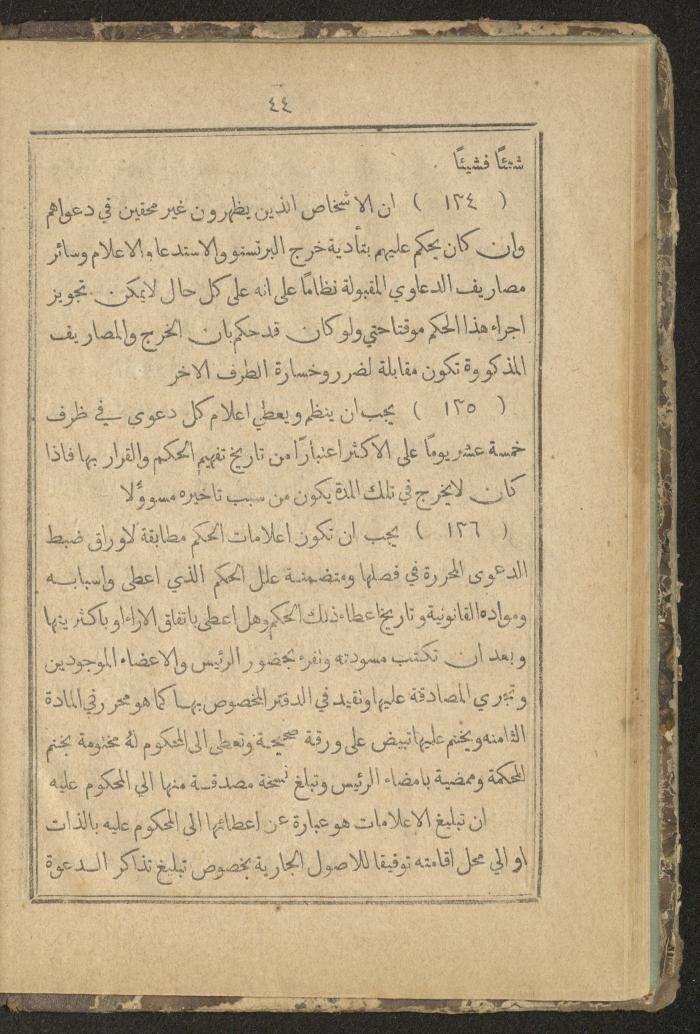 ٤٤
شيئًا فشيئًا
( ١٣٤ ) ان الاشخاص الذين يظهرون غير محقين في دعواهم
وان كان يحكم عليهم بتأدية خرج البرتستو والاستدعا والاعلام وسائر
مصاريف الدعاوي المقبولة نظامًا على انه على كل حال لايمكن تجويز
اجراء هذا الحكم موقتا حتي ولو كان قد حكم بان الخرج والمصاريف
المذكووة تكون مقابلة لضرر وخسارة الطرف الاخر
( ١٣٥ ) يجب ان ينظم ويعطي اعلام كل دعوى في ظرف
خمسة عشر يومًا على الاكثر اعتبارًا من تاريخ تفهيم الحكم والقرار بها فاذا
كان لايخرج في تلك المدة يكون من سبب تاخيره مسوؤلا
( ١٣٦ ) يجب ان تكون اعلامات الحكم مطابقة لاوراق ضبط
الدعوى المحررة في فصلها ومتضمنة علل الحكم الذي اعطى واسبابه
ومواده القانونية وتاريخ اعطاء ذلك الحكم وهل اعطي باتفاق الاراء او باكثريتها
وبعد ان تكتب مسودته وتقرء بحضور الرئيس والاعضاء الموجودين
وتجري المصادقة عليها وتقيد في الدفتر المخصوص بها كما هو محرر في المادة
الثامنه ويختم عليها تبيض على ورقة صحيحة وتعطى الى المحكوم لهُ مختومة بختم
المحكمة وممضية بامضاء الرئيس وتبلغ نسخة مصدقة منها الي المحكوم عليه
ان تبليغ الاعلامات هو عبارة عن اعطائها الى المحكوم عليه بالذات
او الي محل اقامته توفيقا للاصول الجارية بخصوص تبليغ تذاكر الدعوة